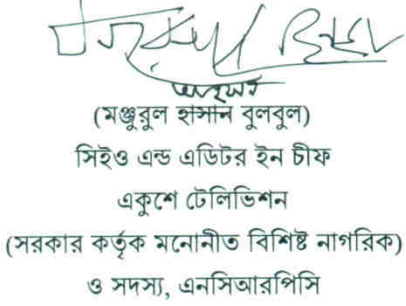 (মঞ্জুরুল হাসান বুলবুল)
সিইও এন্ড এডিটর ইন চীফ
একুশে টেলিভিশন
(সরকার কর্তৃক মনোনীত বিশিষ্ট নাগরিক)
ও সদস্য, এনসিআরপিসি